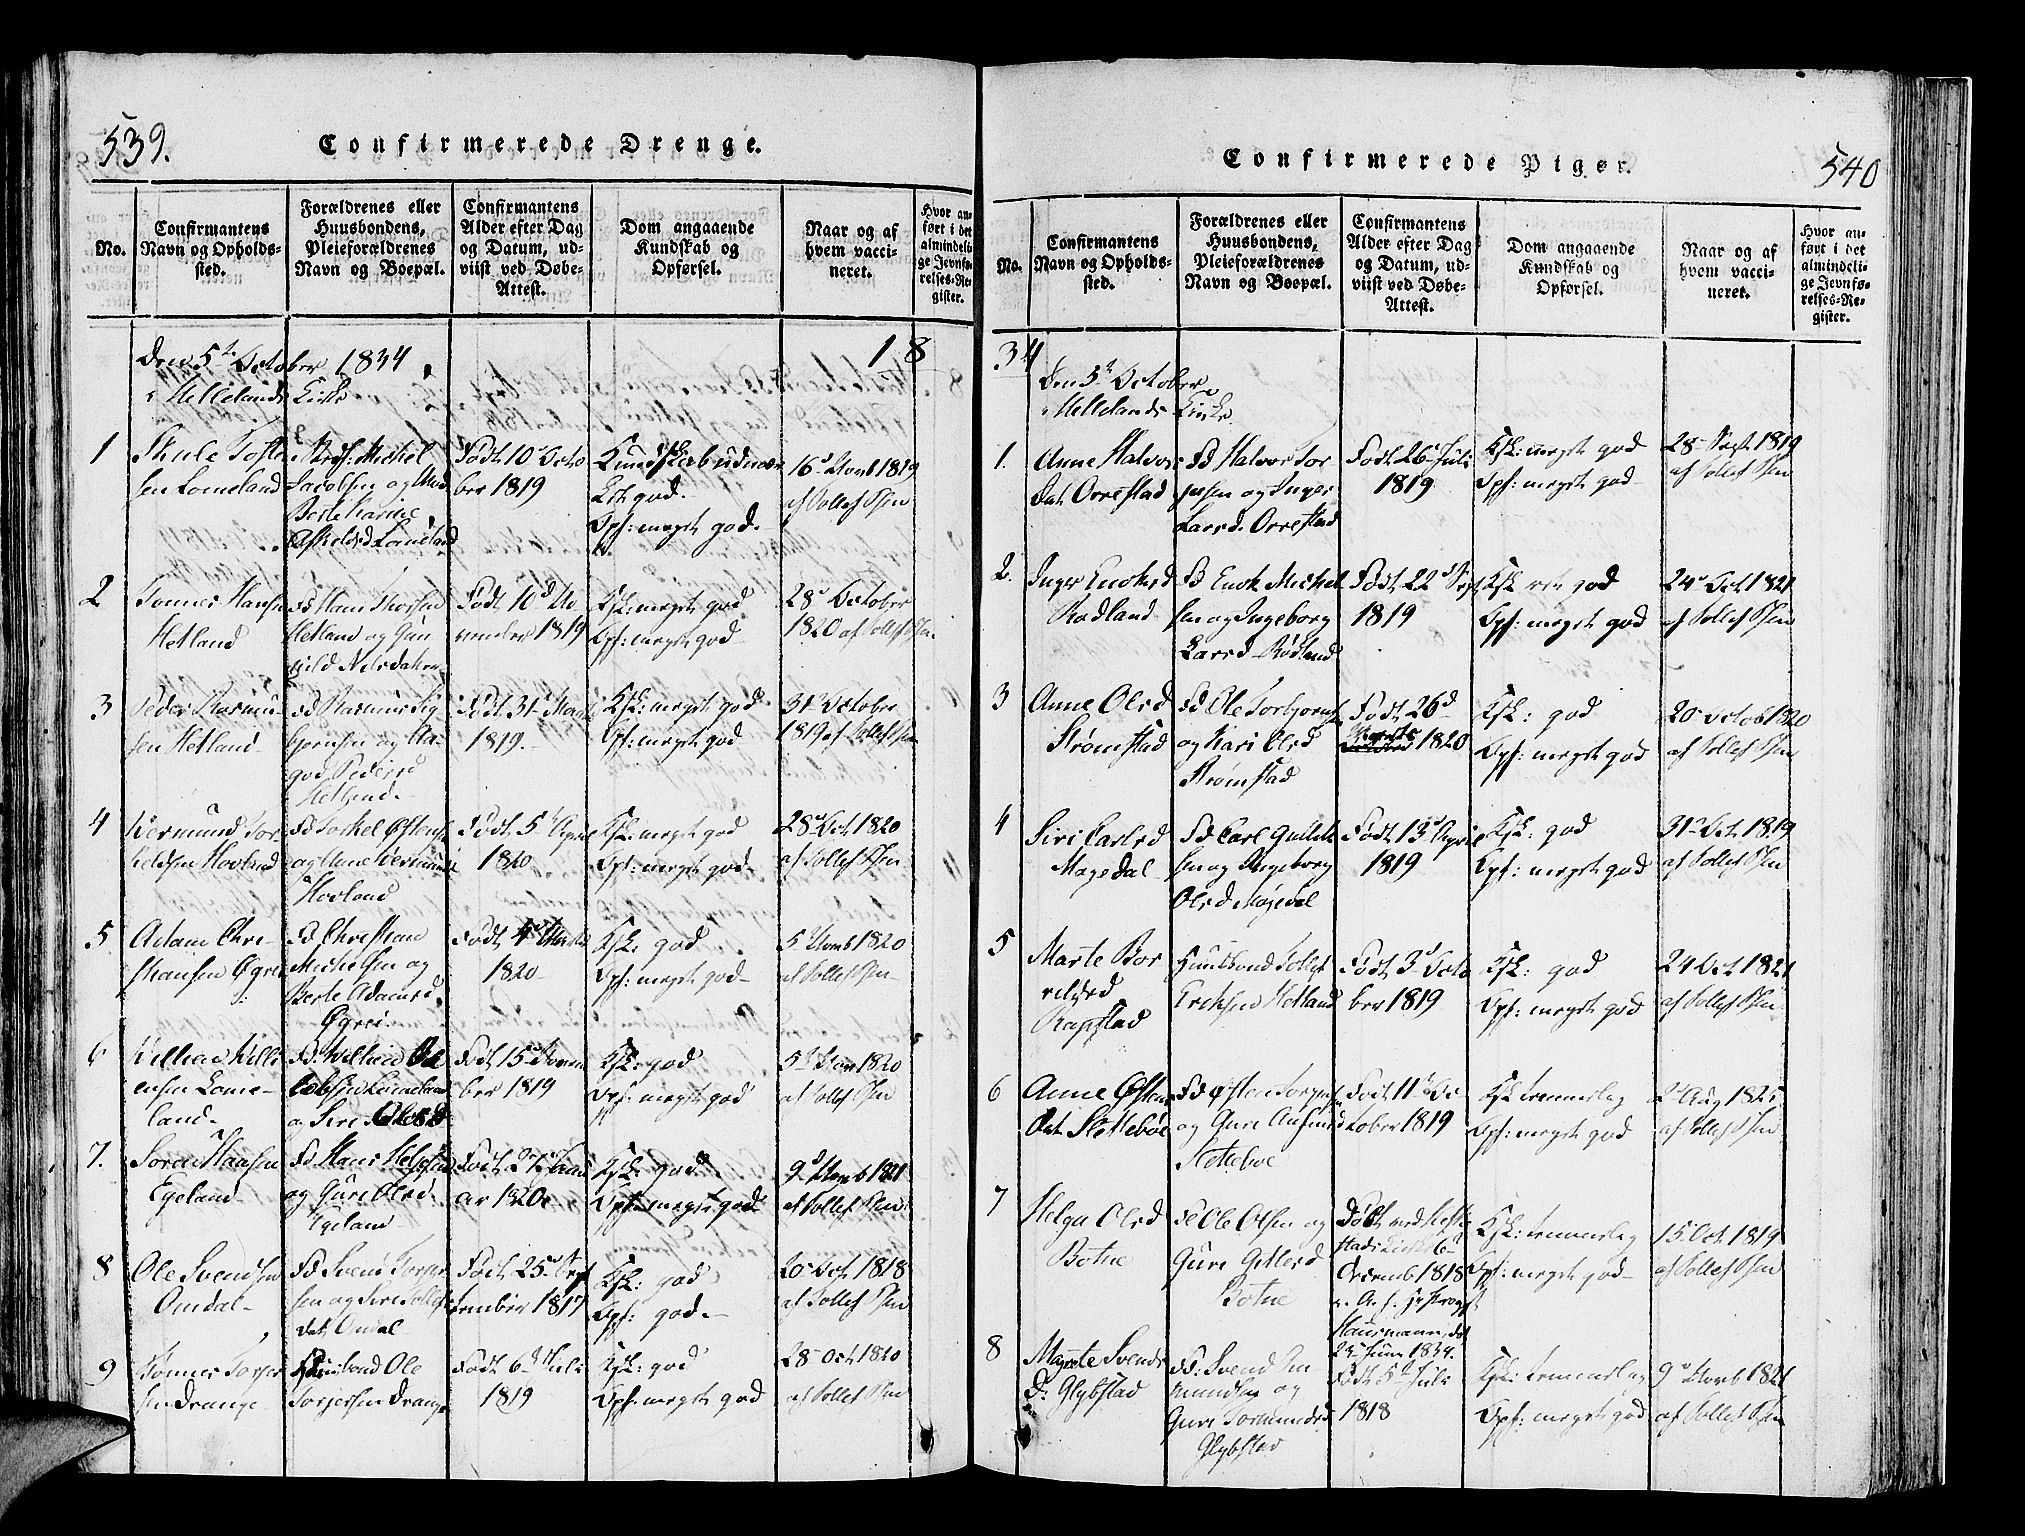 539.
Confirmerede Drenge.
No.
Confirmantens Navn og Opholds-sted.
Forældrenes eller Huusbondens, Pleieforældrenes Navn og Boepæl.
Confirmantens Alder efter Dag og Datum, ud-viist ved Døbe-Attest.
Dom angaaende Kundskab og Opførsel.
Naar og af hvem vacci-neret.
Hvor an-ført i det almindeli-ge Jevnfø-relses-Re-gister.
Den 5te October 1834
i Hellelands Kirke
18
1
Skule Tosten
sen Lomeland
Michel
Jacobsen og
Berte Karine
Askelsd Lomeland
Født 10d Octo
ber 1819
Kundskab udmær
ket god.
Opf: meget god.
16d Novb 1819
af Tollef Olsen
2
Tonnes Hansen
Hetland
Hans Thorsen
Hetland og Gun
hild Nilsdatter
Født 10d No
vember 1819
Ksk: meget god
Opf: meget god
28d October
1820 af Tollef Olsen
3
Peder Rasmu
sen Hetland
Rasmus Sig
bjørnsen og Aa-
god Pedersd
Hetland.
Født 31d Marts
1819.
Ksk: meget god
Opf: meget god
31d October
1819 af Tollef Olsen
4
Vermund Tor
kildsen Hovland
Torkel Østens
og Anne Vermunds
Hovland
Født 5d April
1820
Ksk: meget god
Opf: meget god.
28d Oct. 1820
af Tollef Olsen
5
Adam Chri-
stiansen Øgrei
Christian
Michelsen og
Berte Adamsd
Øgrei
Født 4d Marts
1820
Ksk: god
Opf: meget god
5d Novb 1820
af Tollef Olsen
6
Villum Villu
msen Lome-
land.
og Siri Olesd
Født 15d Novem
ber 1819
Ksk: god
Opf: meget god
5d Nov 1820
af Tollef Olsen
7.
Soren Hansen
Egeland
Hans Helgesen
og Guri Olsd.
Egeland
Født 2d Janu
ar 1820
Ksk: god
Opf: meget god
9d Novb 1821
af Tollef Olsen
8
Ole Svendsen
Omdal
Svend Torjer
sen og Siri Tollefs
dat. Omdal
Født 25d Sep
tember 1817
Ksk: god
Opf: god.
20d Oct. 1818
af Tollef Olsen
9
Tonnes Torjer
sen Drange
Huusbond Ole
Torjersen Drange
Født 6d Juli
1819
Ksk: god
Opf: meget god
28d Oct 1820
af Tollef Olsen
Confirmerede Piger.
540
No.
Confirmantens Navn og Opholds-sted.
Forældrenes eller Huusbondens, Pleieforældrenes Navn og Boepæl.
Confirmantens Alder efter Dag og Datum, ud-viist ved Døbe-Attest.
Dom angaaende Kundskab og Opførsel.
Naar og af hvem vacci-neret.
Hvor an-ført i det almindeli-ge Jevnfø-relses-Re-gister.
34
Den 5te October
i Hellelands Kirke
1.
Anne Halvors
dat. Orrestad
Halvor Tor
jusen og Inger
Larsd. Orrestad
Født 26d Juli
1819
Ksk: meget god
Opf: meget god
28d Sept. 1819
af Tollef Olsen
2.
Inger Enoksd
Rodland
Enok Michel
sen og Ingeborg
Larsd Rødland
Født 22d Sept
1819
Ksk: ret god
Opf: meget god
24d Oct 1821
af Tollef Olsen
3
Anne Olsd
Strømstad
Ole Torbjørns
og Kari Olsd
Strømstad
Født 26d
Marts 1820
Ksk: god
Opf: meget god
20d Octob 1820
af Tollef Olsen
4
Siri Carlsd
Mogedal
Carl Gullik
sen og Ingeborg
Olsd Mogedal
Født 13d April
1819
Ksk: god
Opf: meget god
31d Oct. 1819
af Tollef Olsen
5
Marte Bor
rildsd
Rapstad
Huusbond Tollef
Eriksen Hetland
Født 3d Octo
ber 1819
Ksk: god
Opf: meget god
24 Oct 1821
af Tollef Olsen
6
Anne Østens
dat. Slettebøe
Østen Torgersen
og Guri Aasmundsd
Slettebøe
Født 11d Oc
tober 1819
Ksk: temmelig
Opf: meget god
2d Aug 1825
af Tollef Olsen
7
Helga Olsd
Botne
Ole Olsen og
Guri Gitlesd
Botne
Døbt ved Heske
stads Kirke 6d
Decemb 1818
Hausmann, dat
24d Juni 1834.
Ksk: temmelig
Opf: meget god
15 Oct. 1819
af Tollef Olsen
8
Marte Svends
D: Glypstad
Svend
og
Guri Tormundsd
Glypstad
Født 5d Juli
1818
Ksk: temmelig
Opf: meget god
9d Novb 1821
af Tollef Olsen